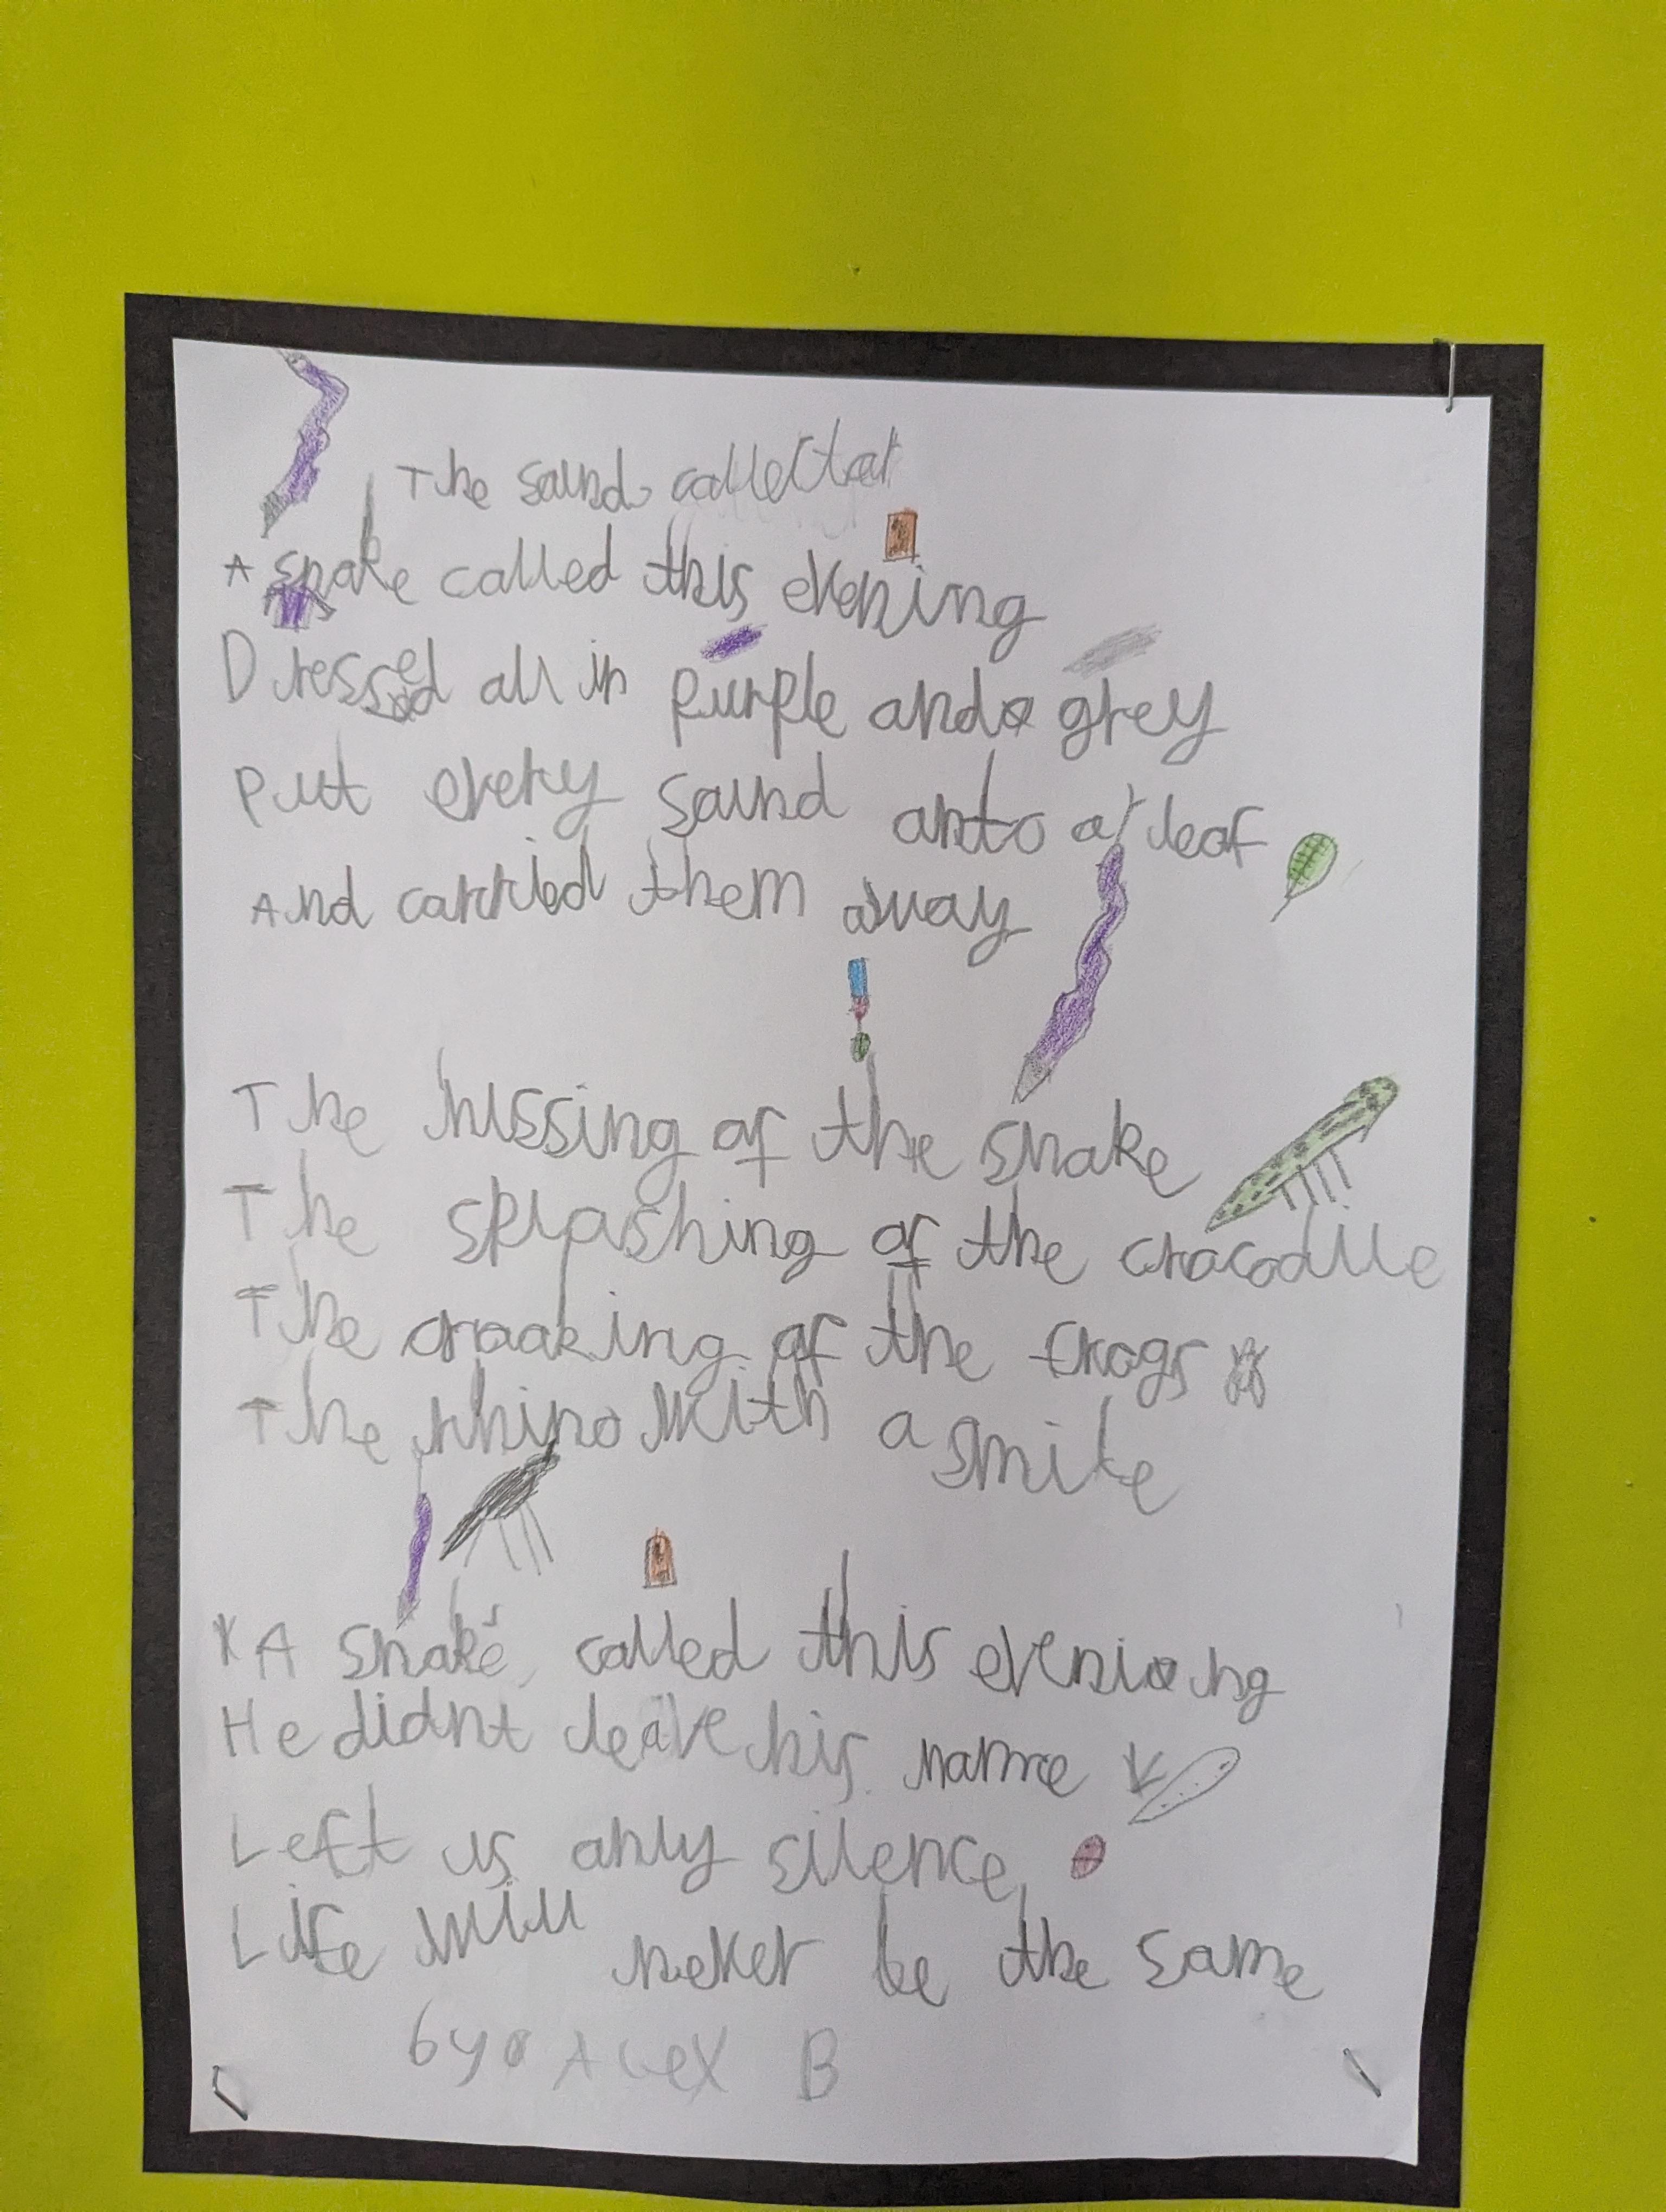 The sound collector
A snake called this evening
Dressed all in purple and grey
Put every sound onto a leaf
And carried them away
The hissing of the snake
The splashing of the crocodile
The croaking of the frogs
The rhino with a smile
A snake called this evening
He didnt leave his name
Left us only silence
Life will never be the same
by Alex B